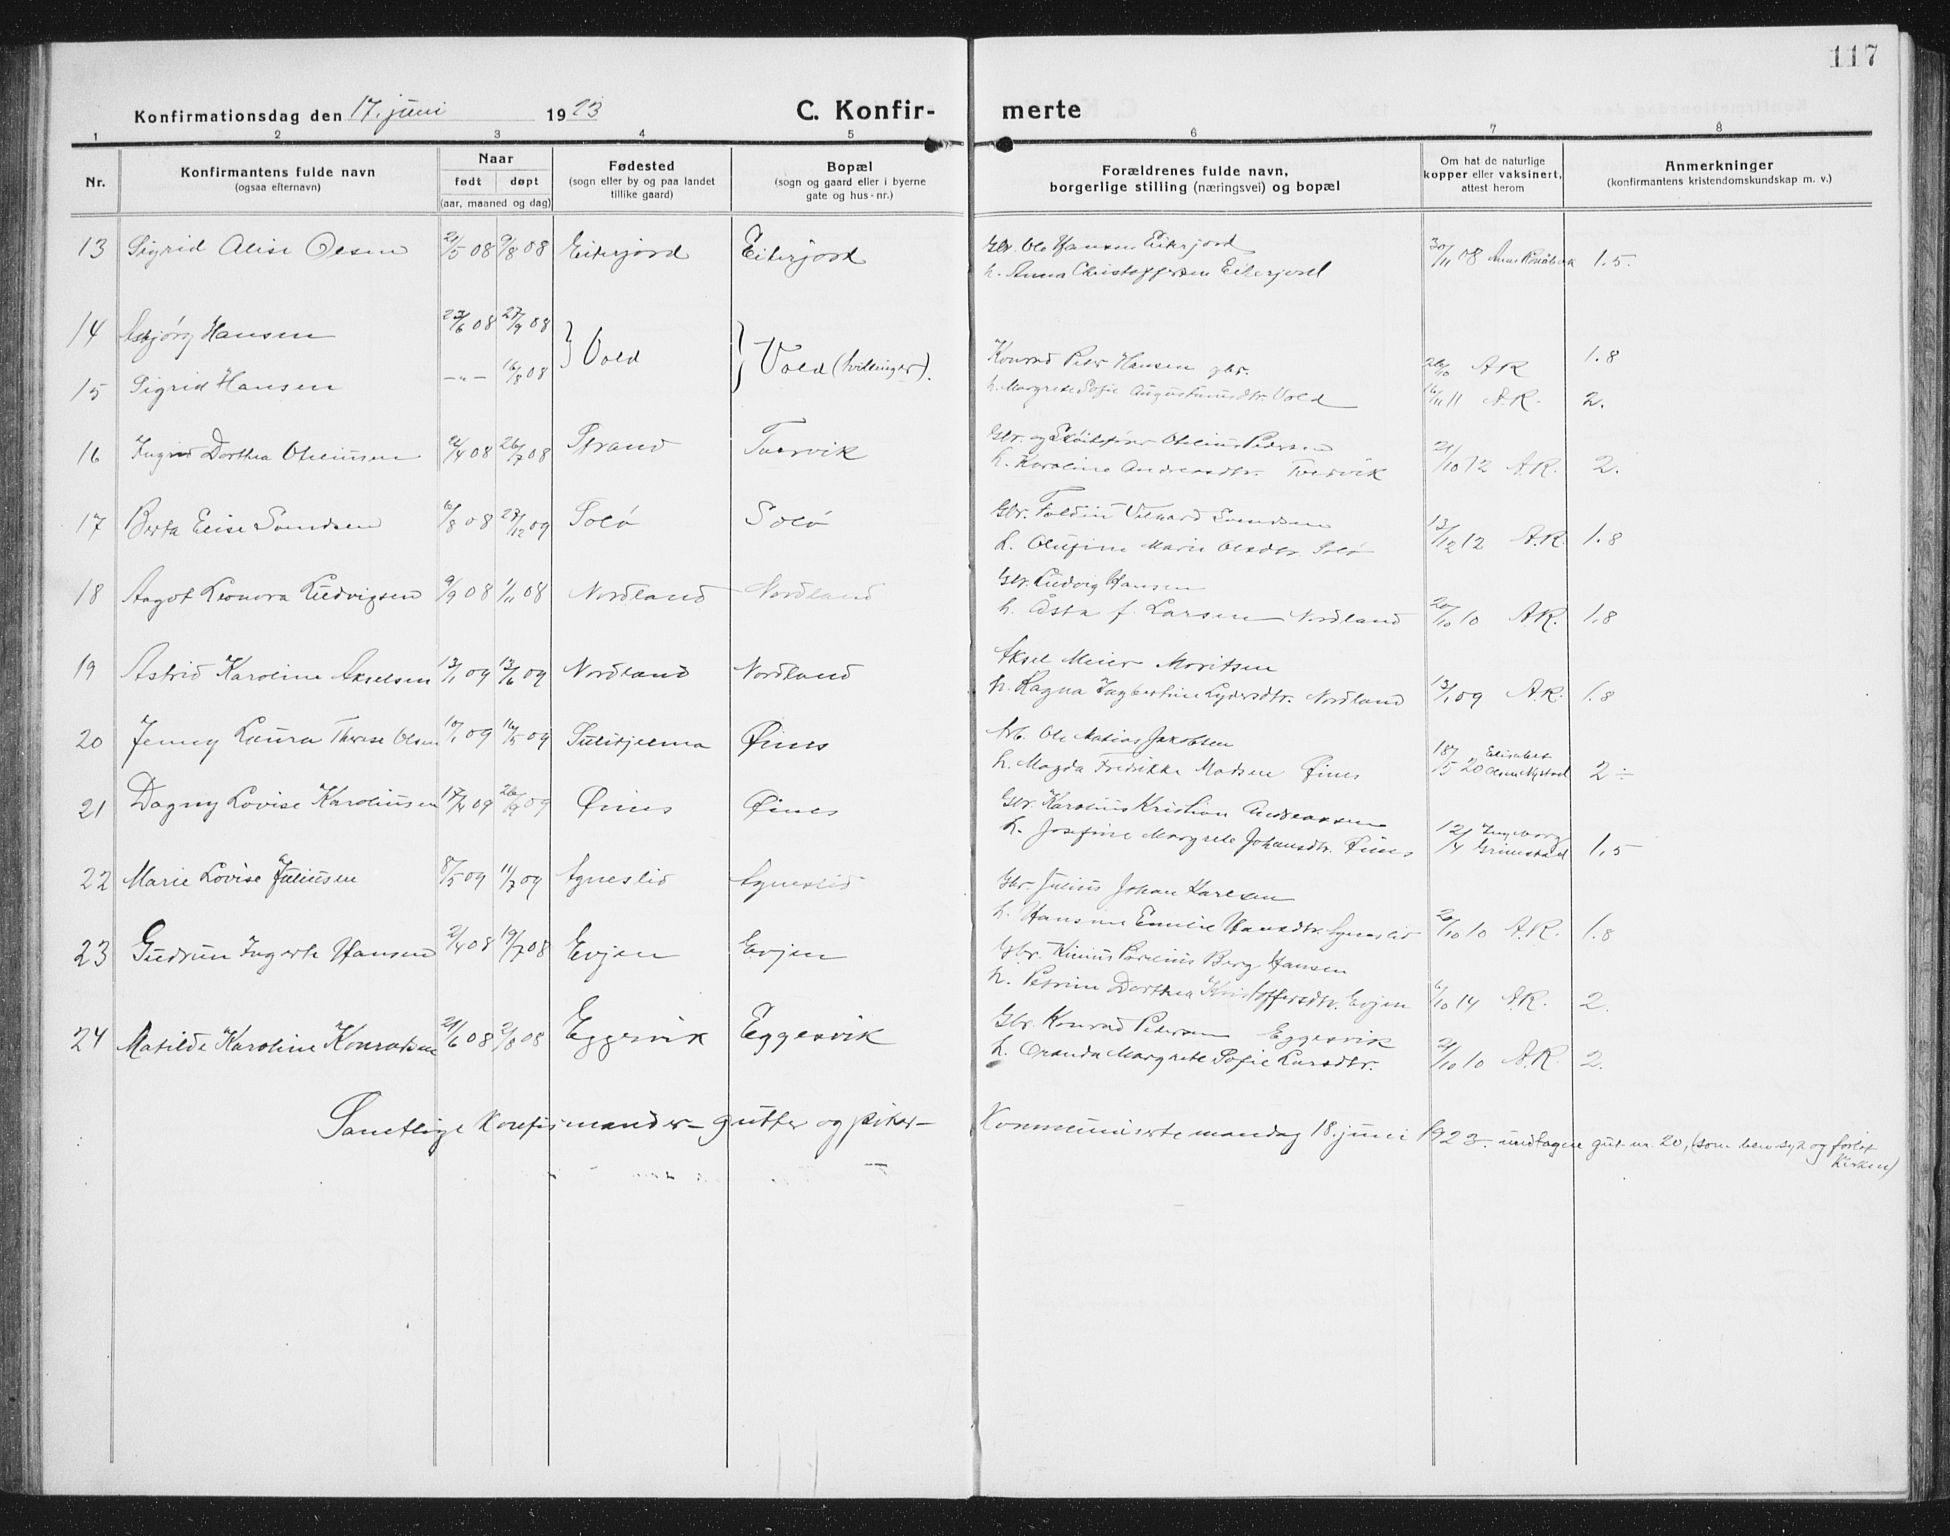 117
Konfirmationsdag den 17. juni 1923
C. Konfir- merte
1 2 3 4 5 6 7 8
Nr.
Konfirmantens fulde navn
(ogsaa efternavn)
Naar
født døpt
(aar, maaned og dag)
Fødested
(sogn eller by og paa landet
tillike gaard)
Bopæl
(sogn og gaard eller i byerne
gate og hus-nr.)
Forældrenes fulde navn,
borgerlige stilling (næringsvei) og bopæl
Om hat de naturlige
kopper eller vaksinert,
attest herom
Anmerkninger
(konfirmantens kristendomskundskap m. v.)
13 Sigrid Alise Olsen 21/5 08 9/8 08 Eiterjord Eiterjord Gbr. Ole Hansen Eiterjord
h. Anna Christoffersen Eiterjord 30/11 08 1.5.
14 Asbjørg Hansen 23/6 08 27/9 08
15 Sigrid Hansen -"- 16/8 08 Vold Vold (tvillinger).
Konrad Peter Hansen gbr. 26/10 A.K. 1.8
h. Margrete Sofie Augustinusdtr. Vold 16/11 11 A.K. 2.
16 Ingrid Dorthea Oteliussen 9/4 08 26/7 08 Strand Tvervik Gbr. og Otelius Pedersen
h. Karoline Andreasdtr. Tvervik 21/10 12 A.K. 2.
17 Berta Elise Svendsen 6/8 08 27/12 09 Solø Solø Gbr. Svendsen
h. Olufine Marie Olsdtr. Solø 13/12 12 A.K. 1.8
18 Aagot Leonora Ludvigsen 9/9 08 1/11 08 Nordland Nordland Gbr. Ludvig Hansen
h. Åsta f. Larsen Nordland 20/10 10 A.K. 1.8
19 Astrid Karoline Akselsen 13/1 09 13/6 09 Nordland Nordland Aksel Meier Moritsen
h. Ragna Ingbertine Lydersdtr. Nordland 13/1 09 A.K. 1.8
20 Jenny Laura Therese Olsen 10/1 09 16/5 09 Sulitjelma Øines Arb. Ole Matias Jakobsen
h. Magda Fredrikke Madsen Øines 18/5 20 Elisabet
Olsen Nystad 2÷
21 Dagny Lovise Karoliussen 09 09 Øines Øines Gbr. Karolius Kristian Andreassen
h. Josefine Margrete Johansdtr. Øines 12/ 14 Ingeborg
Grimstad 1,5
22 Marie Lovise Juliussen 8/5 09 11/7 09 Agneslid Agneslid Gbr. Julius Johan Karlsen
h. Hansine Emilie Hansdtr. Agneslid 20/10 10 A.K. 1.8
23 Gudrun Ingerte Hansen 2/4 08 19/7 08 Evjen Evjen Gbr. Berg Hansen
h. Petrine Dorthea Kristoffersdtr. Evjen 6/10 14 A.K. 2.
24 Matilde Karoline Konradsen 21/6 08 2/8 08 Eggesvik Eggesvik Gbr. Konrad Pedersen Eggesvik
h. Oranda Margrete Sofie Larsdtr. 21/10 10 A.K. 2.
Samtlige konfirmander - gutter og piker - Kommuniserte mandag 18. juni 1923. undtagen gut nr. 20, (som blev syk og forlot
kirken)